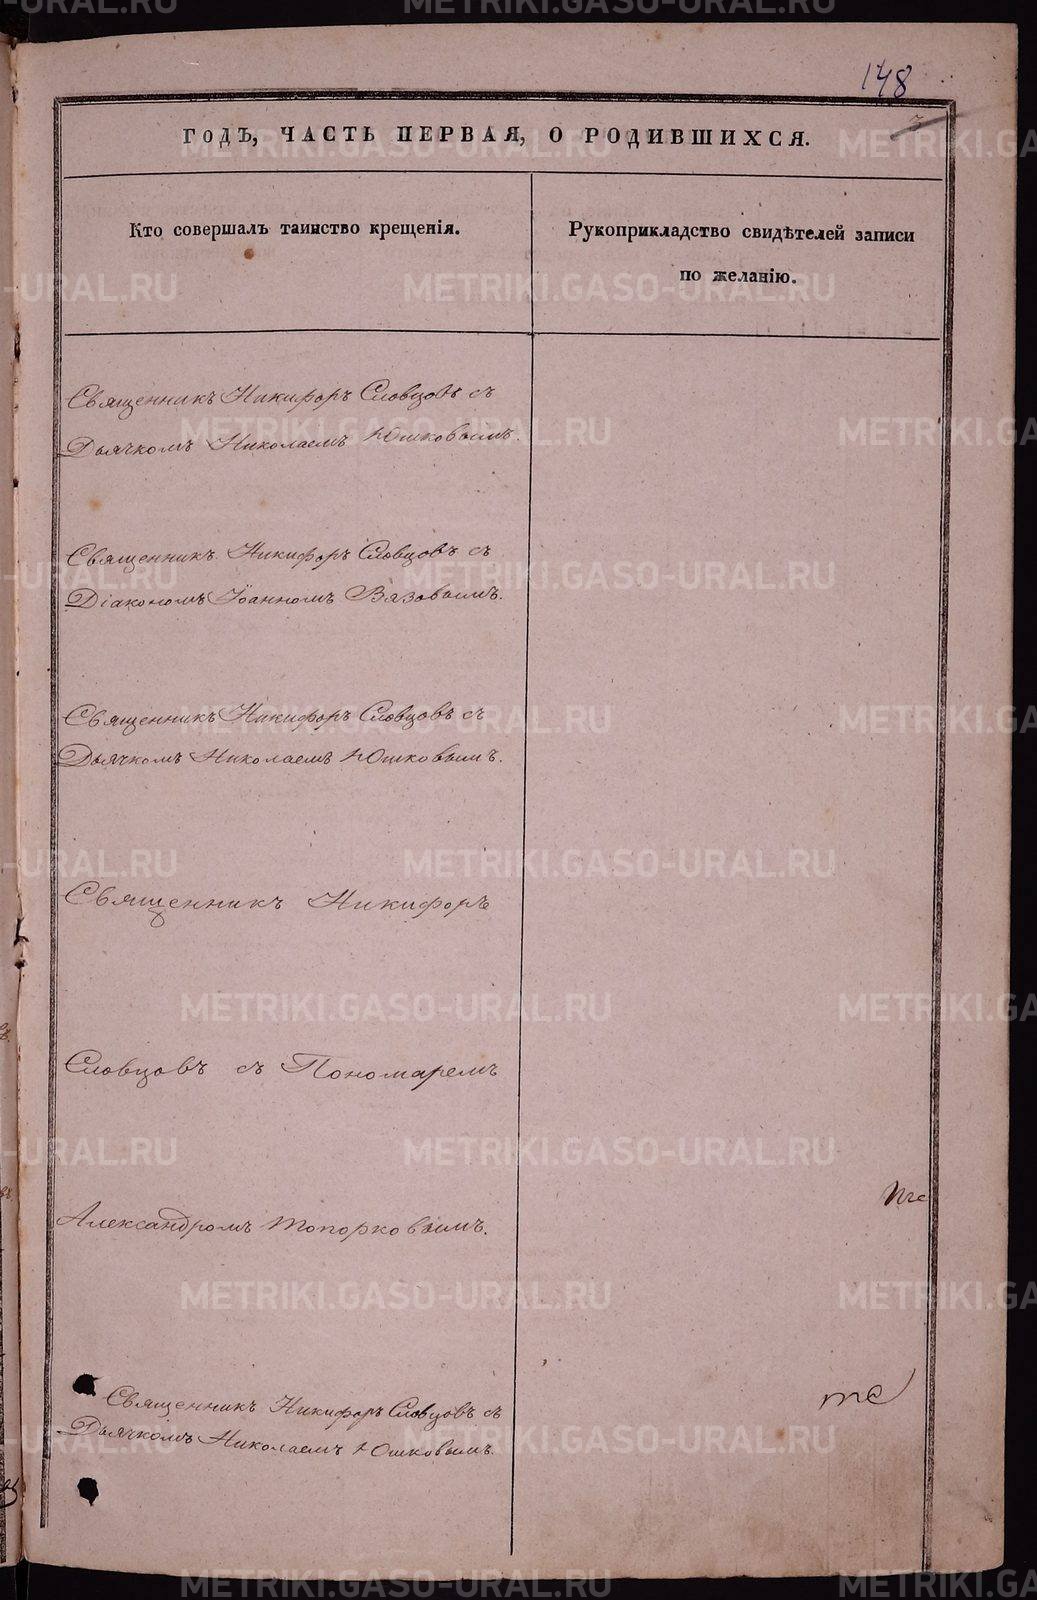 148
3
ГОДЪ, ЧАСТЬ ПЕРВАЯ, О РОДИВШИХСЯ.
Кто совершалъ таинство крещенія.
Рукоприкладство свидѣтелей записи
по желанію.
Священникъ Никифоръ Словцовъ съ
Дьячкомъ Николаемъ Юшковымъ.
Священникъ Никифоръ Словцовъ съ
Діакономъ Іоанномъ Вязовымъ.
Священникъ Никифоръ Словцовъ съ
Дьячкомъ Николаемъ Юшковымъ.
Священникъ Никифоръ
Словцовъ съ Пономаремъ
Александромъ Топорковымъ.
Священникъ Никифоръ Словцовъ съ
Дьячкомъ Николаемъ Юшковымъ.
METRIKI.GASO-URAL.RU